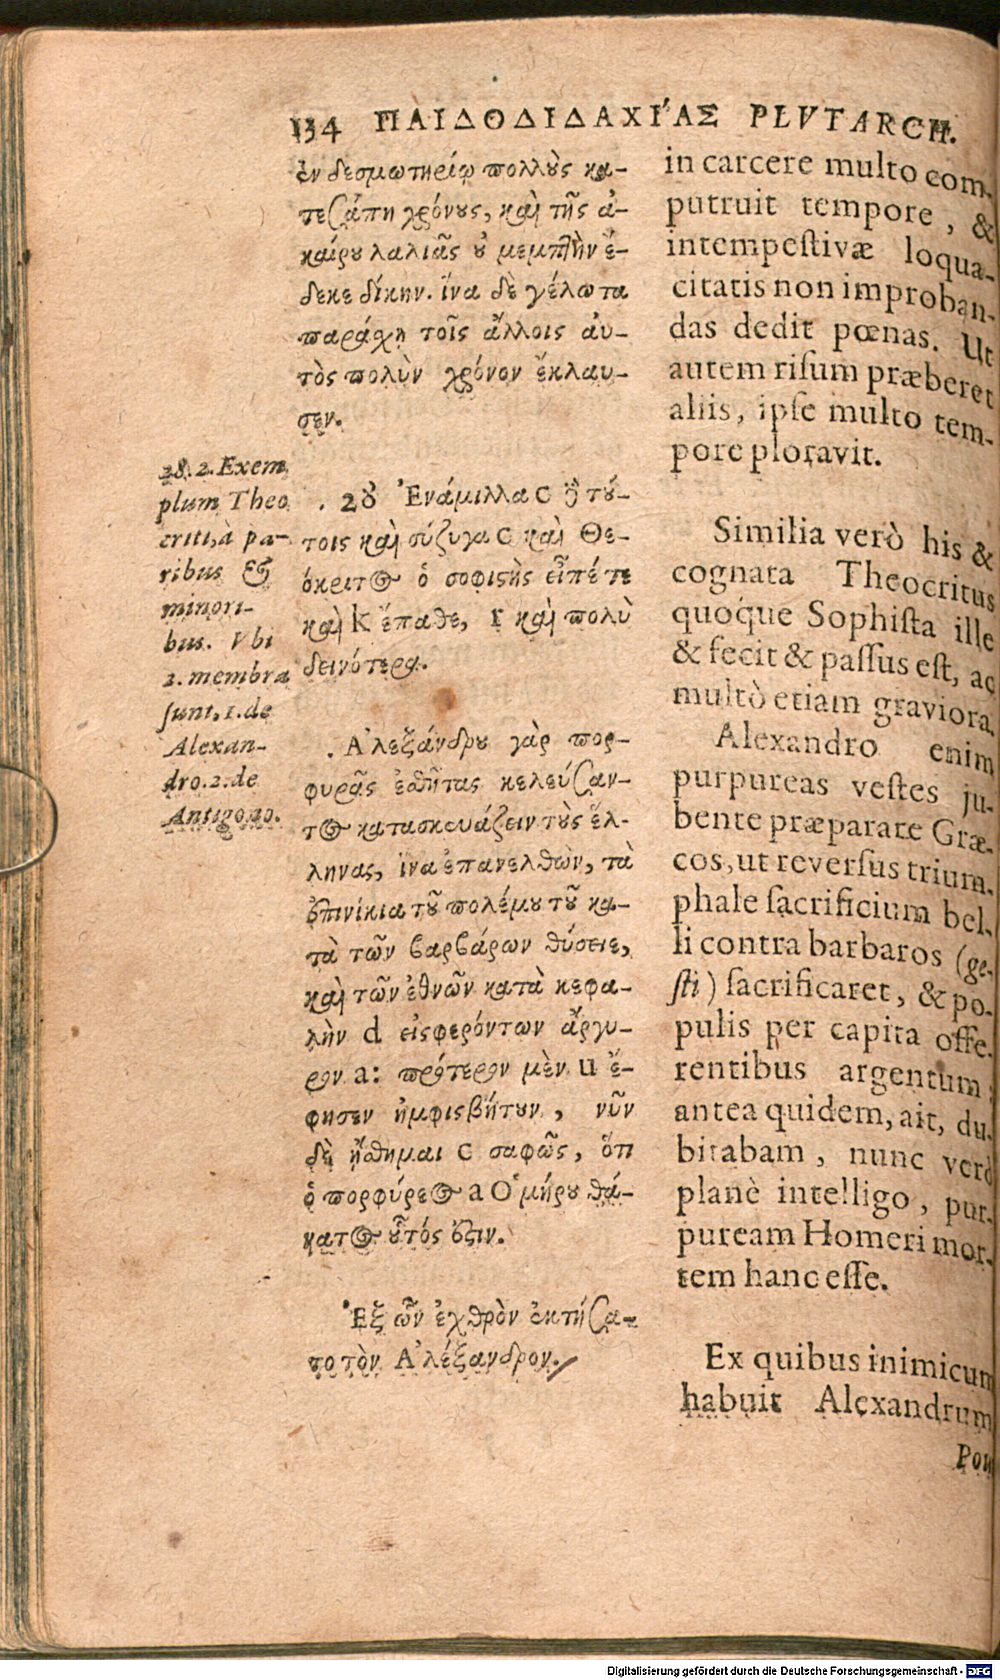 134 ΠΑΙΔΟΔΙΔΑΧΙ´ΑΣ PLVTARCH.
ἐν δεσμωτηρίῳ πολλοὺς κα-
τεσάπη χρόνους, καὶ τῆς ἀ-
καίρου λαλιᾶς οὐ μεμπτὴν ἔ-
δεκε δίκην. ἵνα δὲ γέλωτα
παράχῃ τοῖς ἄλλοις αὐ-
τὸς πολὺν χρόνον ἔκλαυ-
σεν.
. 28 Ἐνάμιλλα c ἢ τού-
τοις καὶ σύζυγα c καὶ Θε-
όκριτος ὁ σοφιστὴς εἶπέ τε
καὶ k ἔπαθε, r καὶ πολὺ
δεινότερα.
. Ἀλεξάνδρου γὰρ πορ-
φυρᾶς ἐσθῆτας κελεύσαν-
τος κατασκευάζειν τοὺς ἕλ-
ληνας, ἵνα ἐπανελθὼν, τὰ
ἐπινίκια τοῦ πολέμου τοῦ κα-
τὰ τῶν βαρβάρων θύσειε,
καὶ τῶν ἐθνῶν κατὰ κεφα-
λὴν d εἰσφερόντων ἄργυ-
ρον a: πρότερον μὲν u ἔ-
φησεν ἠμφισβήτουν, νῦν
δὲ ᾔσθημαι c σαφῶς, ὅτι
ὁ πορφύρεος a Ὁμήρου θά-
νατος οὗτός ἐστιν.
Ἐξ ὧν ἐχθρὸν ἐκτήσα-
το τὸν Ἀλέξανδρον.
28.2. Exem
plum Theo
criti, à pa-
ribus &
minori-
bus. Vbi
2. membra
sunt, 1. de
Alexan-
dro. 2. de
Antigono.
in carcere multo com-
putruit tempore, &
intempestivæ loqua-
citatis non improban-
das dedit pœnas. Ut
autem risum præberet
aliis, ipse multo tem-
pore ploravit.
Similia verò his &
cognata Theocritus
quoque Sophista ille
& fecit & passus est, ac
multò etiam graviora.
Alexandro enim
purpureas vestes ju-
bente præparare Græ-
cos, ut reversus trium-
phale sacrificium bel-
li contra barbaros (ge-
sti) sacrificaret, & po-
pulis per capita offe-
rentibus argentum:
antea quidem, ait, du-
bitabam, nunc verò
planè intelligo, pur-
puream Homeri mor-
tem hanc esse.
Ex quibus inimicum
habuit Alexandrum
Pon
Digitalisierung gefördert durch die Deutsche Forschungsgemeinschaft - DFG